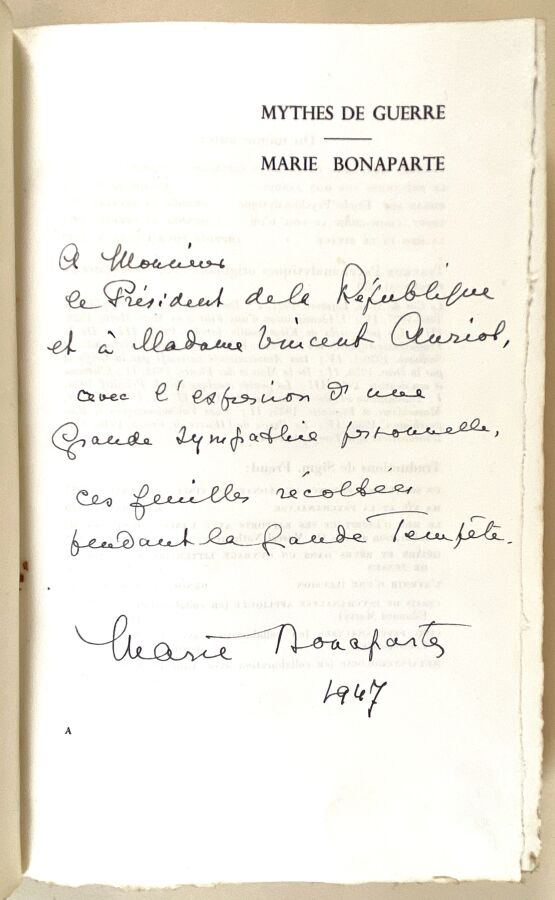 MYTHES DE GUERRE
MARIE BONAPARTE
A Monsieur
le Président de la République
et à Madame Vincent Auriol,
avec l'expression d'une
grande sympathie personnelle,
ces feuilles récoltées
pendant la grande Tempête.
Marie Bonaparte
1947
A